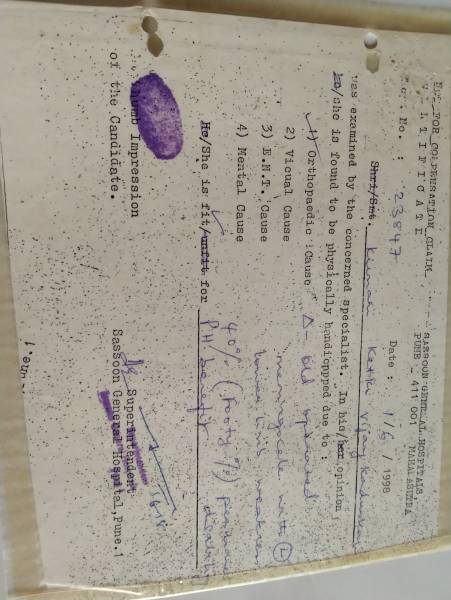 NOT FOR COMPENSATION CLAIM
SASSOON GENERAL HOSPITALS,
MAHARASTRA
PUNE - 411 001
TIFICATE
No. : 23847
Date : 1/6/1998
Shri/Smt. Kumari Ketki Vijay
was examined by the concerned specialist. In his/her opinion
he/she is found to be physically handicapped due to :
1) Orthopaedic Cause Δ - old operated
2) Vicual Cause meningocele with (L)
3) E.N.T. Cause lower limb weakness
4) Mental Cause 40% (Forty %) permanent
disability
He/She is fit/unfit for PH/benefit
Thumb Impression
of the Candidate.
Superintendent
Sassoon General Hospital, Pune.1